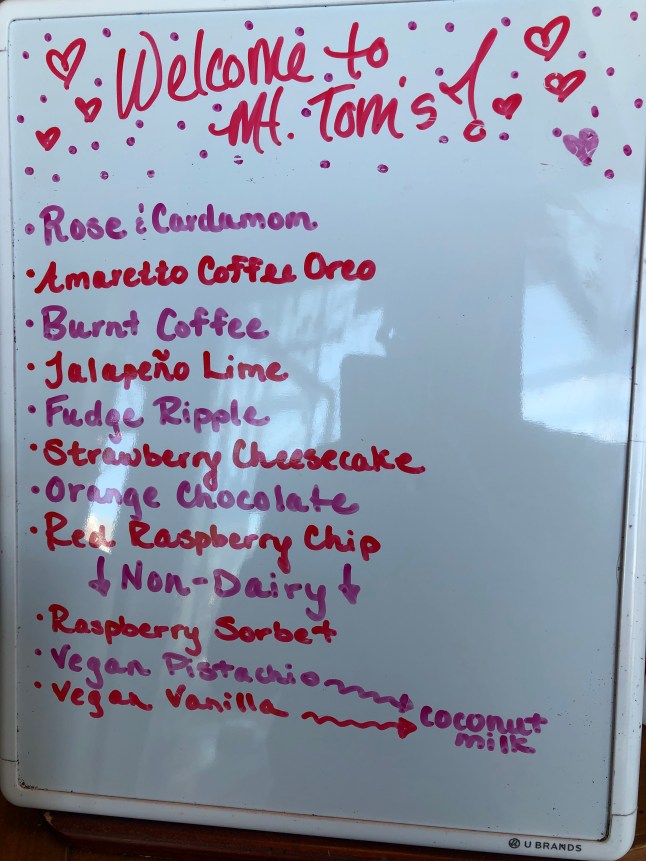 Welcome to
Mt. Tom's!
• Rose & Cardamom
• Amaretto Coffee Oreo
• Burnt Coffee
• Jalapeño Lime
• Fudge Ripple
• Strawberry Cheesecake
• Orange Chocolate
• Red Raspberry Chip
↓ Non-Dairy ↓
• Raspberry Sorbet
• Vegan Pistachio → coconut milk
• Vegan Vanilla →
U BRANDS